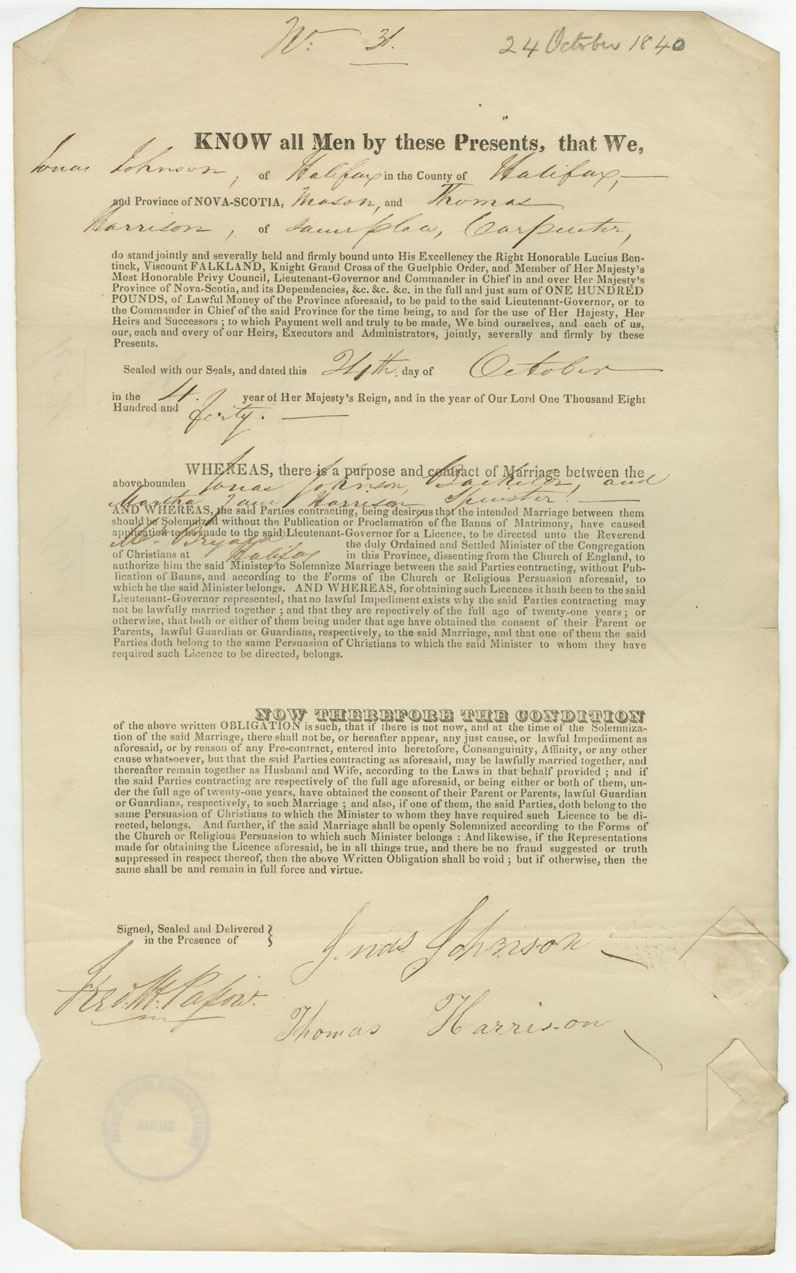 No. 31.
24 October 1840
KNOW all Men by these Presents, that We,
Jonas Johnson, of Halifax in the County of Halifax,
and Province of NOVA-SCOTIA, Mason, and Thomas
Harrison, of same place, Carpenter,
do stand jointly and severally held and firmly bound unto His Excellency the Right Honorable Lucius Ben-
tinck, Viscount FALKLAND, Knight Grand Cross of the Guelphic Order, and Member of Her Majesty's
Most Honorable Privy Council, Lieutenant-Governor and Commander in Chief in and over Her Majesty's
Province of Nova-Scotia, and its Dependencies, &c. &c. &c. in the full and just sum of ONE HUNDRED
POUNDS, of Lawful Money of the Province aforesaid, to be paid to the said Lieutenant-Governor, or to
the Commander in Chief of the said Province for the time being, to and for the use of Her Hajesty, Her
Heirs and Successors ; to which Payment well and truly to be made, We bind ourselves, and each of us,
our, each and every of our Heirs, Executors and Administrators, jointly, severally and firmly by these
Presents.
Sealed with our Seals, and dated this 24th. day of October
in the 4. year of Her Majesty's Reign, and in the year of Our Lord One Thousand Eight
Hundred and forty.
WHEREAS, there is a purpose and contract of Marriage between the
above bounden Jonas Johnson, Bachelor, and
Martha Jane Harrison Spinster!
AND WHEREAS, the said Parties contracting, being desirous that the intended Marriage between them
should be Solemnized without the Publication or Proclamation of the Banns of Matrimony, have caused
application to be made to the said Lieutenant-Governor for a Licence, to be directed unto the Reverend
Mr. the duly Ordained and Settled Minister of the Congregation
of Christians at Halifax in this Province, dissenting from the Church of England, to
authorize him the said Minister to Solemnize Marriage between the said Parties contracting, without Pub-
lication of Banns, and according to the Forms of the Church or Religious Persuasion aforesaid, to
which he the said Minister belongs. AND WHEREAS, for obtaining such Licences it hath been to the said
Lieutenant-Governor represented, that no lawful Impediment exists why the said Parties contracting may
not be lawfully married together ; and that they are repectively of the full age of twenty-one years ; or
otherwise, that both or either of them being under that age have obtained the consent of their Parent or
Parents, lawful Guardian or Guardians, respectively, to the said Marriage, and that one of them the said
Parties doth belong to the same Persuasion of Christians to which the said Minister to whom they have
required such Licence to be directed, belongs.
NOW THEREFORE THE CONDITION
of the above written OBLIGATION is such, that if there is not now, and at the time of the Solemniza-
tion of the said Marriage, there shall not be, or hereafter appear, any just cause, or lawful Impediment as
aforesaid, or by reason of any Pre-contract, entered into heretofore, Consanguinity, Affinity, or any other
cause whatsoever, but that the said Parties contracting as aforesaid, may be lawfully married together, and
thereafter remain together as Husband and Wife, according to the Laws in that behalf provided ; and if
the said Parties contracting are respectively of the full age aforesaid, or being either or both of them, un-
der the full age of twenty-one years, have obtained the consent of their Parent or Parents, lawful Guardian
or Guardians, respectively, to such Marriage ; and also, if one of them, the said Parties, doth belong to the
same Persuasion of Christians to which the Minister to whom they have required such Licence to be di-
rected, belongs. And further, if the said Marriage shall be openly Solemnized according to the Forms of
the Church or Religious Persuasion to which such Minister belongs : And likewise, if the Representations
made for obtaining the Licence aforesaid, be in all things true, and there be no fraud suggested or truth
suppressed in respect thereof, then the above Written Obligation shall be void ; but if otherwise, then the
same shall be and remain in full force and virtue.
Signed, Sealed and Delivered
in the Presence of
Jonas Johnson
Thomas Harrison